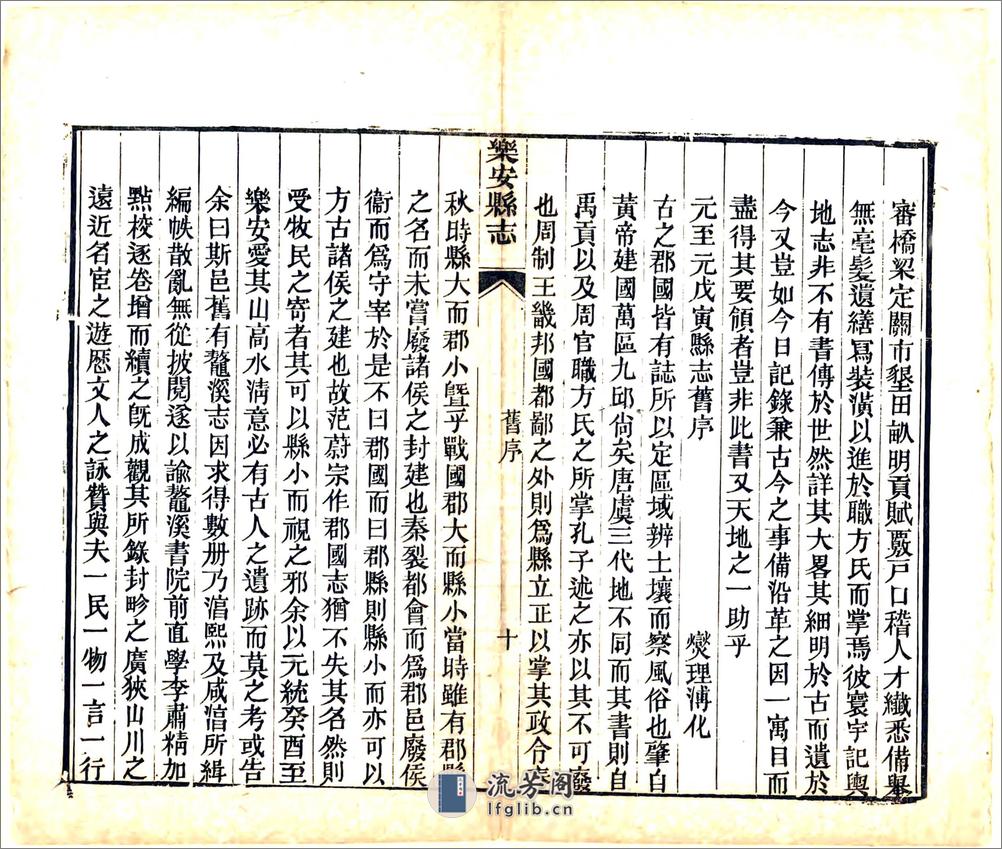 審橋梁定關市墾田畝明貢賦覈戸口稽人才纖悉備舉
無毫髮遺繕寫裝潢以進於職方氏而掌焉彼寰宇記輿
地志非不有書傳於世然詳其大畧其細明於古而遺於
今又豈如今日記錄兼古今之事備沿革之因一寓目而
盡得其要領者豈非此書又天地之一助乎
元至元戊寅縣志舊序 燮理溥化
古之郡國皆有誌所以定區域辨土壤而察風俗也肇自
黃帝建國萬區九邱尙矣唐虞三代地不同而其書則自
禹貢以及周官職方氏之所掌孔子述之亦以其不可廢
也周制王畿邦國都鄙之外則爲縣立正以掌其政令春
樂安縣志
舊序
十
秋時縣大而郡小曁乎戰國郡大而縣小當時雖有郡縣
之名而未嘗廢諸侯之封建也秦裂都會而爲郡邑廢侯
衞而爲守宰於是不曰郡國而曰郡縣則縣小而亦可以
方古諸侯之建也故范蔚宗作郡國志猶不失其名然則
受牧民之寄者其可以縣小而視之邪余以元統癸酉至
樂安愛其山高水淸意必有古人之遺跡而莫之考或告
余曰斯邑舊有鼇溪志因求得數册乃湻熙及咸湻所緝
編帙散亂無從披閱遂以諭鼇溪書院前直學李肅精加
點校逐卷增而續之旣成觀其所錄封畛之廣狹山川之
遠近名宦之遊歷文人之詠贊與夫一民一物一言一行
流芳阁
lfglib.cn